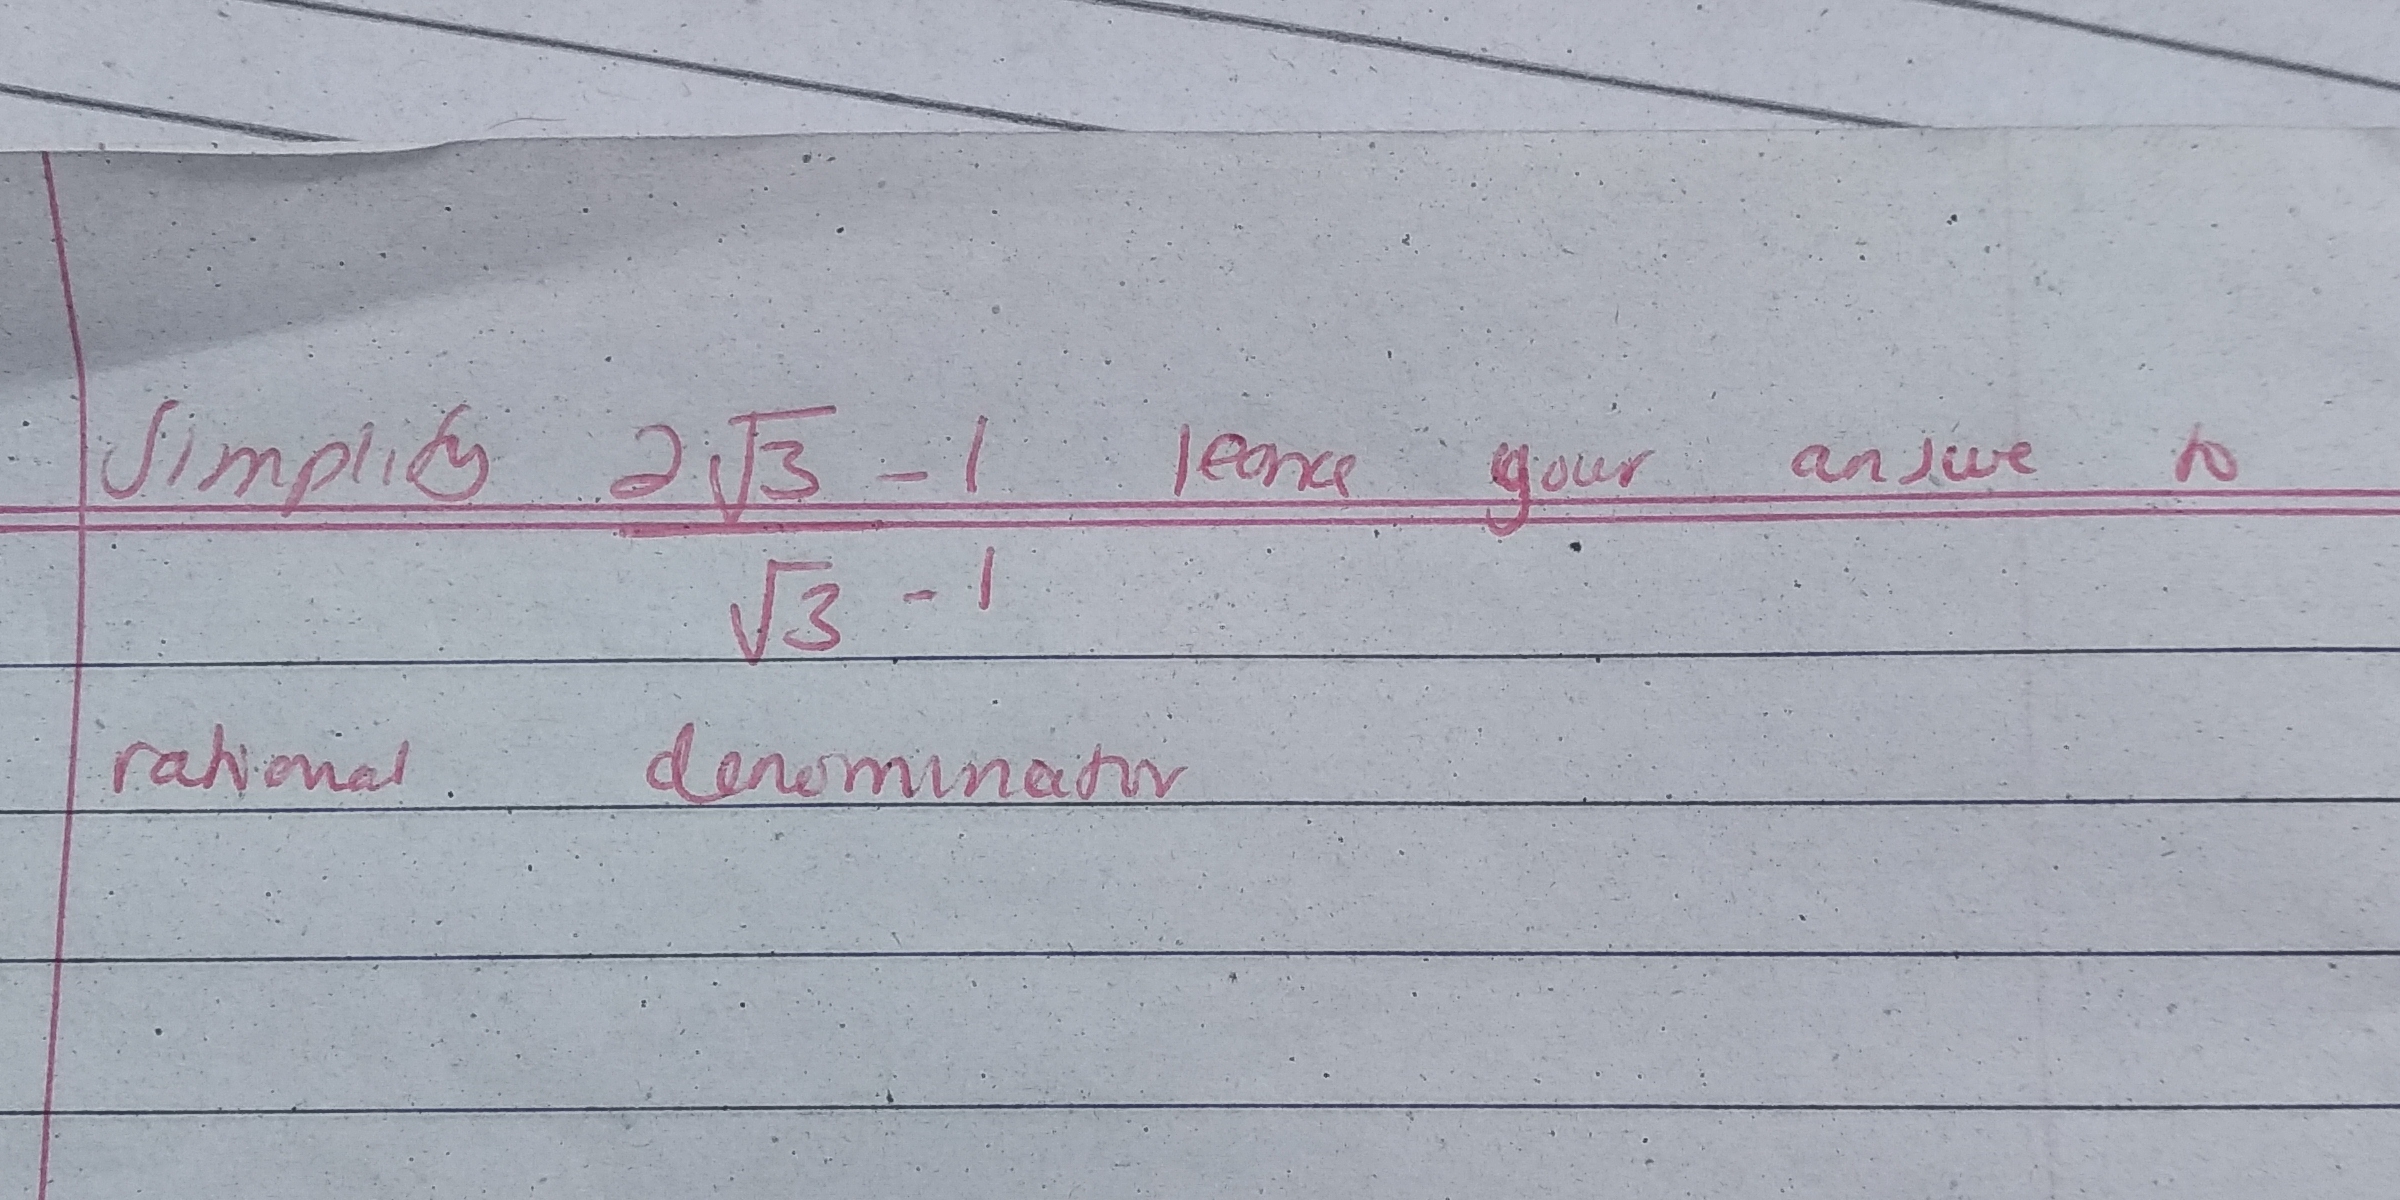 Simplify 2√3 - 1 leave your answe to
√3 - 1
rational denominator